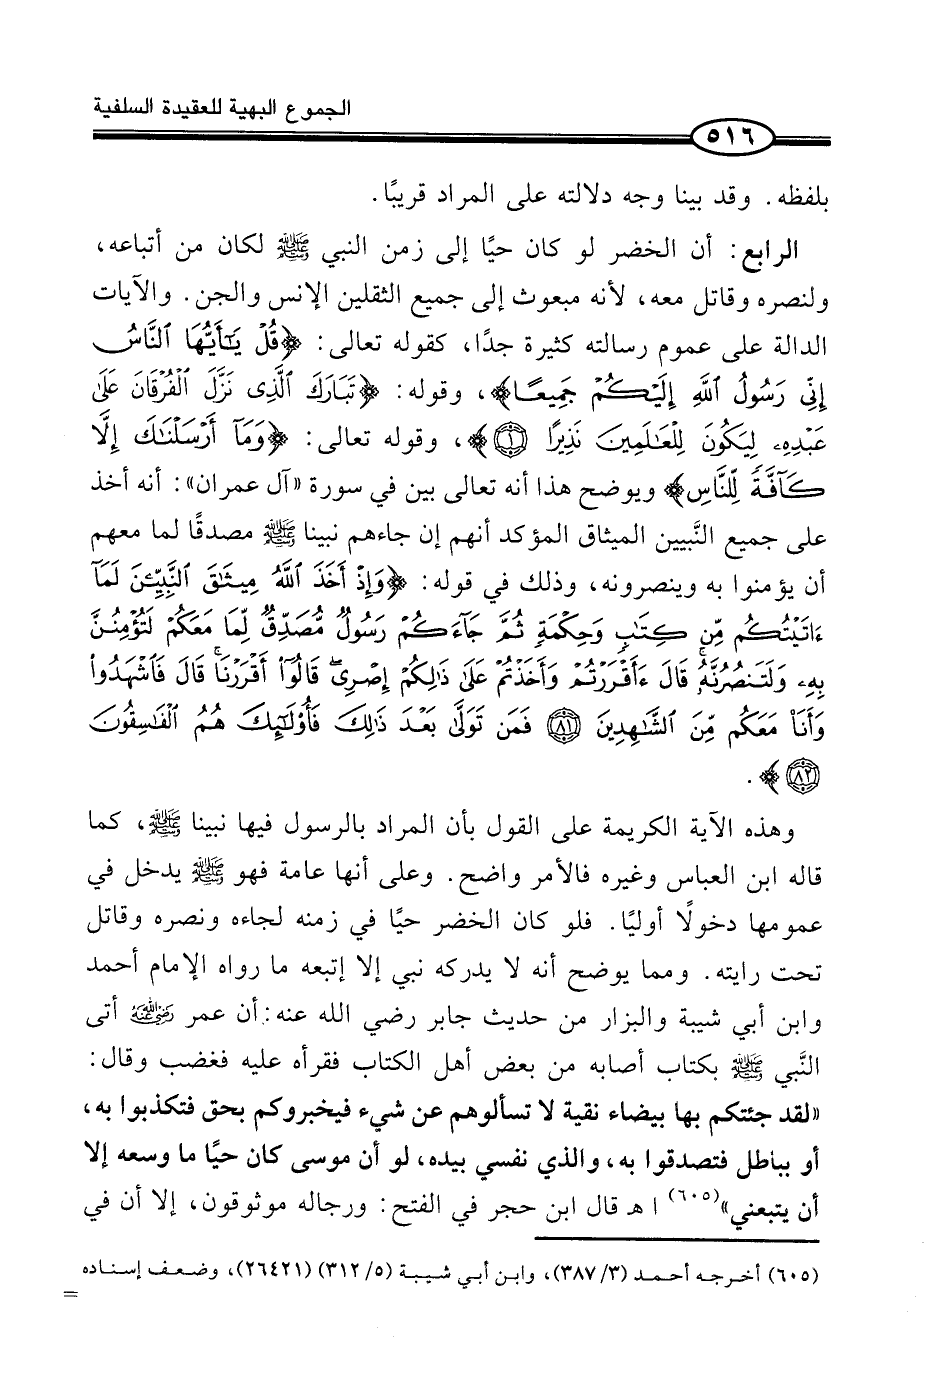 الجموع البهية للعقيدة السلفية
٥١٦
بلفظه. وقد بينا وجه دلالته على المراد قريبًا.
الرابع: أن الخضر لو كان حيًا إلى زمن النبي ﷺ لكان من أتباعه،
ولنصره وقاتل معه، لأنه مبعوث إلى جميع الثقلين الإنس والجن. والآيات
الدالة على عموم رسالته كثيرة جدًا، كقوله تعالى: ﴿قُلْ يَٰٓأَيُّهَا ٱلنَّاسُ
إِنِّي رَسُولُ ٱللَّهِ إِلَيْكُمْ جَمِيعًا﴾، وقوله: ﴿تَبَارَكَ ٱلَّذِى نَزَّلَ ٱلْفُرْقَانَ عَلَىٰ
عَبْدِهِۦ لِيَكُونَ لِلْعَٰلَمِينَ نَذِيرًا ١﴾، وقوله تعالى: ﴿وَمَآ أَرْسَلْنَٰكَ إِلَّا
كَآفَّةً لِّلنَّاسِ﴾ ويوضح هذا أنه تعالى بين في سورة «آل عمران»: أنه أخذ
على جميع النَّبيين الميثاق المؤكد أنهم إن جاءهم نبينا ﷺ مصدقًا لما معهم
أن يؤمنوا به وينصرونه، وذلك في قوله: ﴿وَإِذْ أَخَذَ ٱللَّهُ مِيثَٰقَ ٱلنَّبِيِّۦنَ لَمَآ
ءَاتَيْتُكُم مِّن كِتَٰبٍ وَحِكْمَةٍ ثُمَّ جَآءَكُمْ رَسُولٌ مُّصَدِّقٌ لِّمَا مَعَكُمْ لَتُؤْمِنُنَّ
بِهِۦ وَلَتَنصُرُنَّهُۥۚ قَالَ ءَأَقْرَرْتُمْ وَأَخَذْتُمْ عَلَىٰ ذَٰلِكُمْ إِصْرِىۖ قَالُوٓا۟ أَقْرَرْنَاۚ قَالَ فَٱشْهَدُوا۟
وَأَنَا۠ مَعَكُم مِّنَ ٱلشَّٰهِدِينَ ٨١ فَمَن تَوَلَّىٰ بَعْدَ ذَٰلِكَ فَأُو۟لَٰٓئِكَ هُمُ ٱلْفَٰسِقُونَ
٨٢﴾.
وهذه الآية الكريمة على القول بأن المراد بالرسول فيها نبينا ﷺ، كما
قاله ابن العباس وغيره فالأمر واضح. وعلى أنها عامة فهو ﷺ يدخل في
عمومها دخولًا أوليًا. فلو كان الخضر حيًا في زمنه لجاءه ونصره وقاتل
تحت رايته. ومما يوضح أنه لا يدركه نبي إلا إتبعه ما رواه الإمام أحمد
وابن أبي شيبة والبزار من حديث جابر رضي الله عنه: أن عمر رضي الله عنه أتى
النَّبي ﷺ بكتاب أصابه من بعض أهل الكتاب فقرأه عليه فغضب وقال:
«لقد جئتكم بها بيضاء نقية لا تسألوهم عن شيء فيخبروكم بحق فتكذبوا به،
أو بباطل فتصدقوا به، والذي نفسي بيده، لو أن موسى كان حيًا ما وسعه إلا
أن يتبعني»(٦٠٥) ا هـ قال ابن حجر في الفتح: ورجاله موثوقون، إلا أن في
(٦٠٥) أخرجه أحمد (٣/ ٣٨٧)، وابن أبي شيبة (٥/ ٣١٢) (٢٦٤٢١)، وضعف إسناده
=